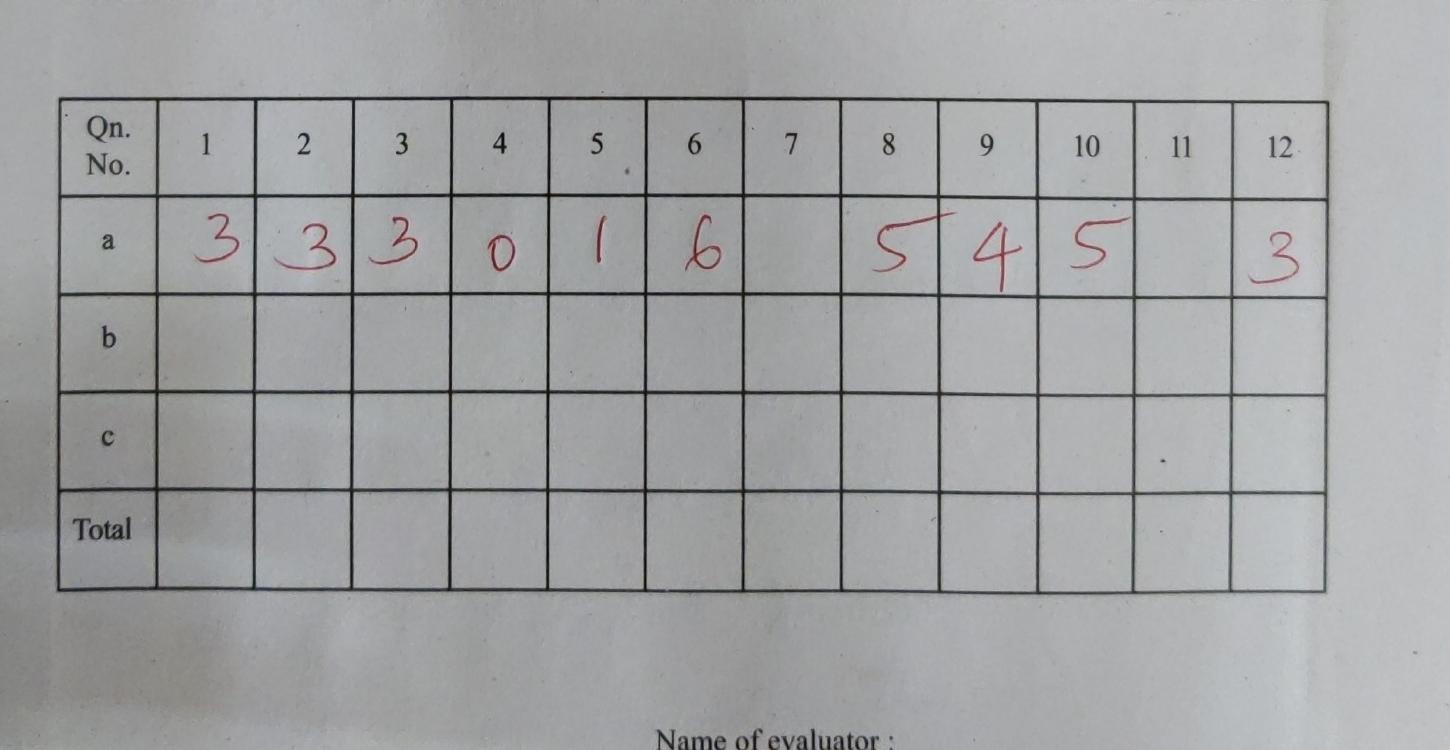 Qn. No. 1 2 3 4 5 6 7 8 9 10 11 12
a 3 3 3 0 1 6 5 4 5 3
b
c
Total
Name of evaluator :